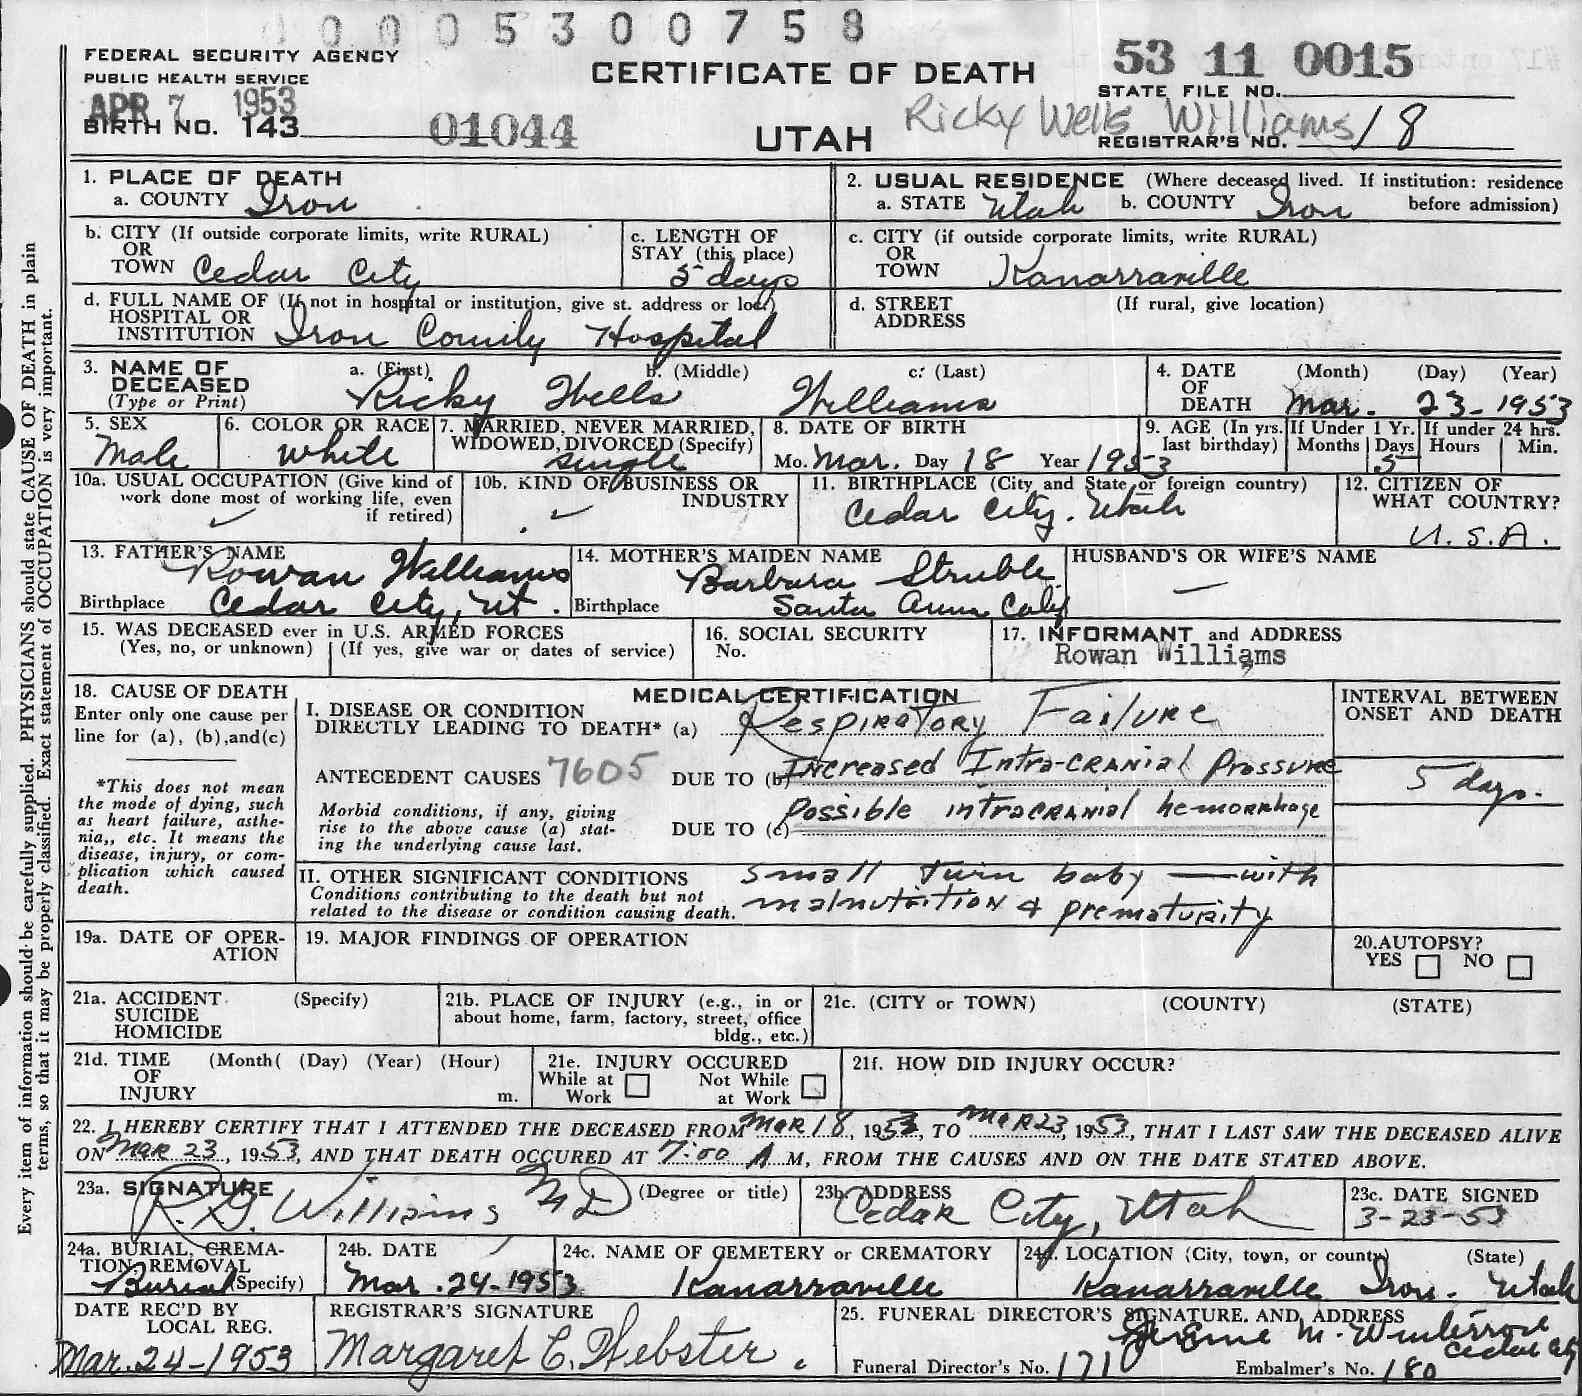 0005300758
FEDERAL SECURITY AGENCY
PUBLIC HEALTH SERVICE
CERTIFICATE OF DEATH
53 11 0015
STATE FILE NO.
APR 7 1953
BIRTH NO. 143
01044
UTAH
Ricky Wells Williams
REGISTRAR'S NO. 18
Every item of information should be carefully supplied. PHYSICIANS should state CAUSE OF DEATH in plain
terms, so that it may be properly classified. Exact statement of OCCUPATION is very important.
1. PLACE OF DEATH
a. COUNTY Iron
2. USUAL RESIDENCE (Where deceased lived. If institution: residence
a. STATE Utah b. COUNTY Iron before admission)
b. CITY (If outside corporate limits, write RURAL)
OR
TOWN Cedar City
c. LENGTH OF
STAY (this place)
5 days
c. CITY (if outside corporate limits, write RURAL)
OR
TOWN Kanarraville
d. FULL NAME OF (If not in hospital or institution, give st. address or loc.)
HOSPITAL OR
INSTITUTION Iron County Hospital
d. STREET (If rural, give location)
ADDRESS
3. NAME OF a. (First) b. (Middle) c. (Last)
DECEASED
(Type or Print) Ricky Wells Williams
4. DATE (Month) (Day) (Year)
OF
DEATH Mar. 23-1953
5. SEX
Male
6. COLOR OR RACE
White
7. MARRIED, NEVER MARRIED,
WIDOWED, DIVORCED (Specify)
single
8. DATE OF BIRTH
Mo. Mar. Day 18 Year 1953
9. AGE (In yrs. If Under 1 Yr. If under 24 hrs.
last birthday) Months Days Hours Min.
5
10a. USUAL OCCUPATION (Give kind of
work done most of working life, even
if retired)
10b. KIND OF BUSINESS OR
INDUSTRY
11. BIRTHPLACE (City and State or foreign country)
Cedar City. Utah
12. CITIZEN OF
WHAT COUNTRY?
U.S.A.
13. FATHER'S NAME
Rowan Williams
Birthplace Cedar City, Ut.
14. MOTHER'S MAIDEN NAME
Barbara Struble
Birthplace Santa Anna Calif
HUSBAND'S OR WIFE'S NAME
15. WAS DECEASED ever in U.S. ARMED FORCES
(Yes, no, or unknown) (If yes, give war or dates of service)
16. SOCIAL SECURITY
No.
17. INFORMANT and ADDRESS
Rowan Williams
18. CAUSE OF DEATH
Enter only one cause per
line for (a), (b),and(c)
*This does not mean
the mode of dying, such
as heart failure, asthe-
nia,, etc. It means the
disease, injury, or com-
plication which caused
death.
MEDICAL CERTIFICATION
I. DISEASE OR CONDITION
DIRECTLY LEADING TO DEATH* (a) Respiratory Failure
ANTECEDENT CAUSES 7605 DUE TO (b) Increased Intra-cranial Pressure
Morbid conditions, if any, giving
rise to the above cause (a) stat-
ing the underlying cause last.
DUE TO (c) Possible intracranial hemorrhage
INTERVAL BETWEEN
ONSET AND DEATH
5 days.
II. OTHER SIGNIFICANT CONDITIONS
Conditions contributing to the death but not
related to the disease or condition causing death.
small twin baby — with
malnutrition & prematurity
19a. DATE OF OPER-
ATION
19. MAJOR FINDINGS OF OPERATION
20.AUTOPSY?
YES NO
21a. ACCIDENT (Specify)
SUICIDE
HOMICIDE
21b. PLACE OF INJURY (e.g., in or
about home, farm, factory, street, office
bldg., etc.)
21c. (CITY or TOWN) (COUNTY) (STATE)
21d. TIME (Month( (Day) (Year) (Hour)
OF
INJURY m.
21e. INJURY OCCURED
While at Not While
Work at Work
21f. HOW DID INJURY OCCUR?
22. I HEREBY CERTIFY THAT I ATTENDED THE DECEASED FROM Mar 18, 1953, TO Mar 23, 1953, THAT I LAST SAW THE DECEASED ALIVE
ON Mar 23, 1953, AND THAT DEATH OCCURED AT 7:00 A M, FROM THE CAUSES AND ON THE DATE STATED ABOVE.
23a. SIGNATURE (Degree or title)
R.G. Williams MD
23b. ADDRESS
Cedar City, Utah
23c. DATE SIGNED
3-23-53
24a. BURIAL, CREMA-
TION, REMOVAL
Burial (Specify)
24b. DATE
Mar. 24-1953
24c. NAME OF CEMETERY or CREMATORY
Kanarraville
24d. LOCATION (City, town, or county) (State)
Kanarraville Iron. Utah
DATE REC'D BY
LOCAL REG.
Mar. 24-1953
REGISTRAR'S SIGNATURE
Margaret C. Webster.
25. FUNERAL DIRECTOR'S SIGNATURE, AND ADDRESS
M.
Cedar City
Funeral Director's No. 171 Embalmer's No. 180